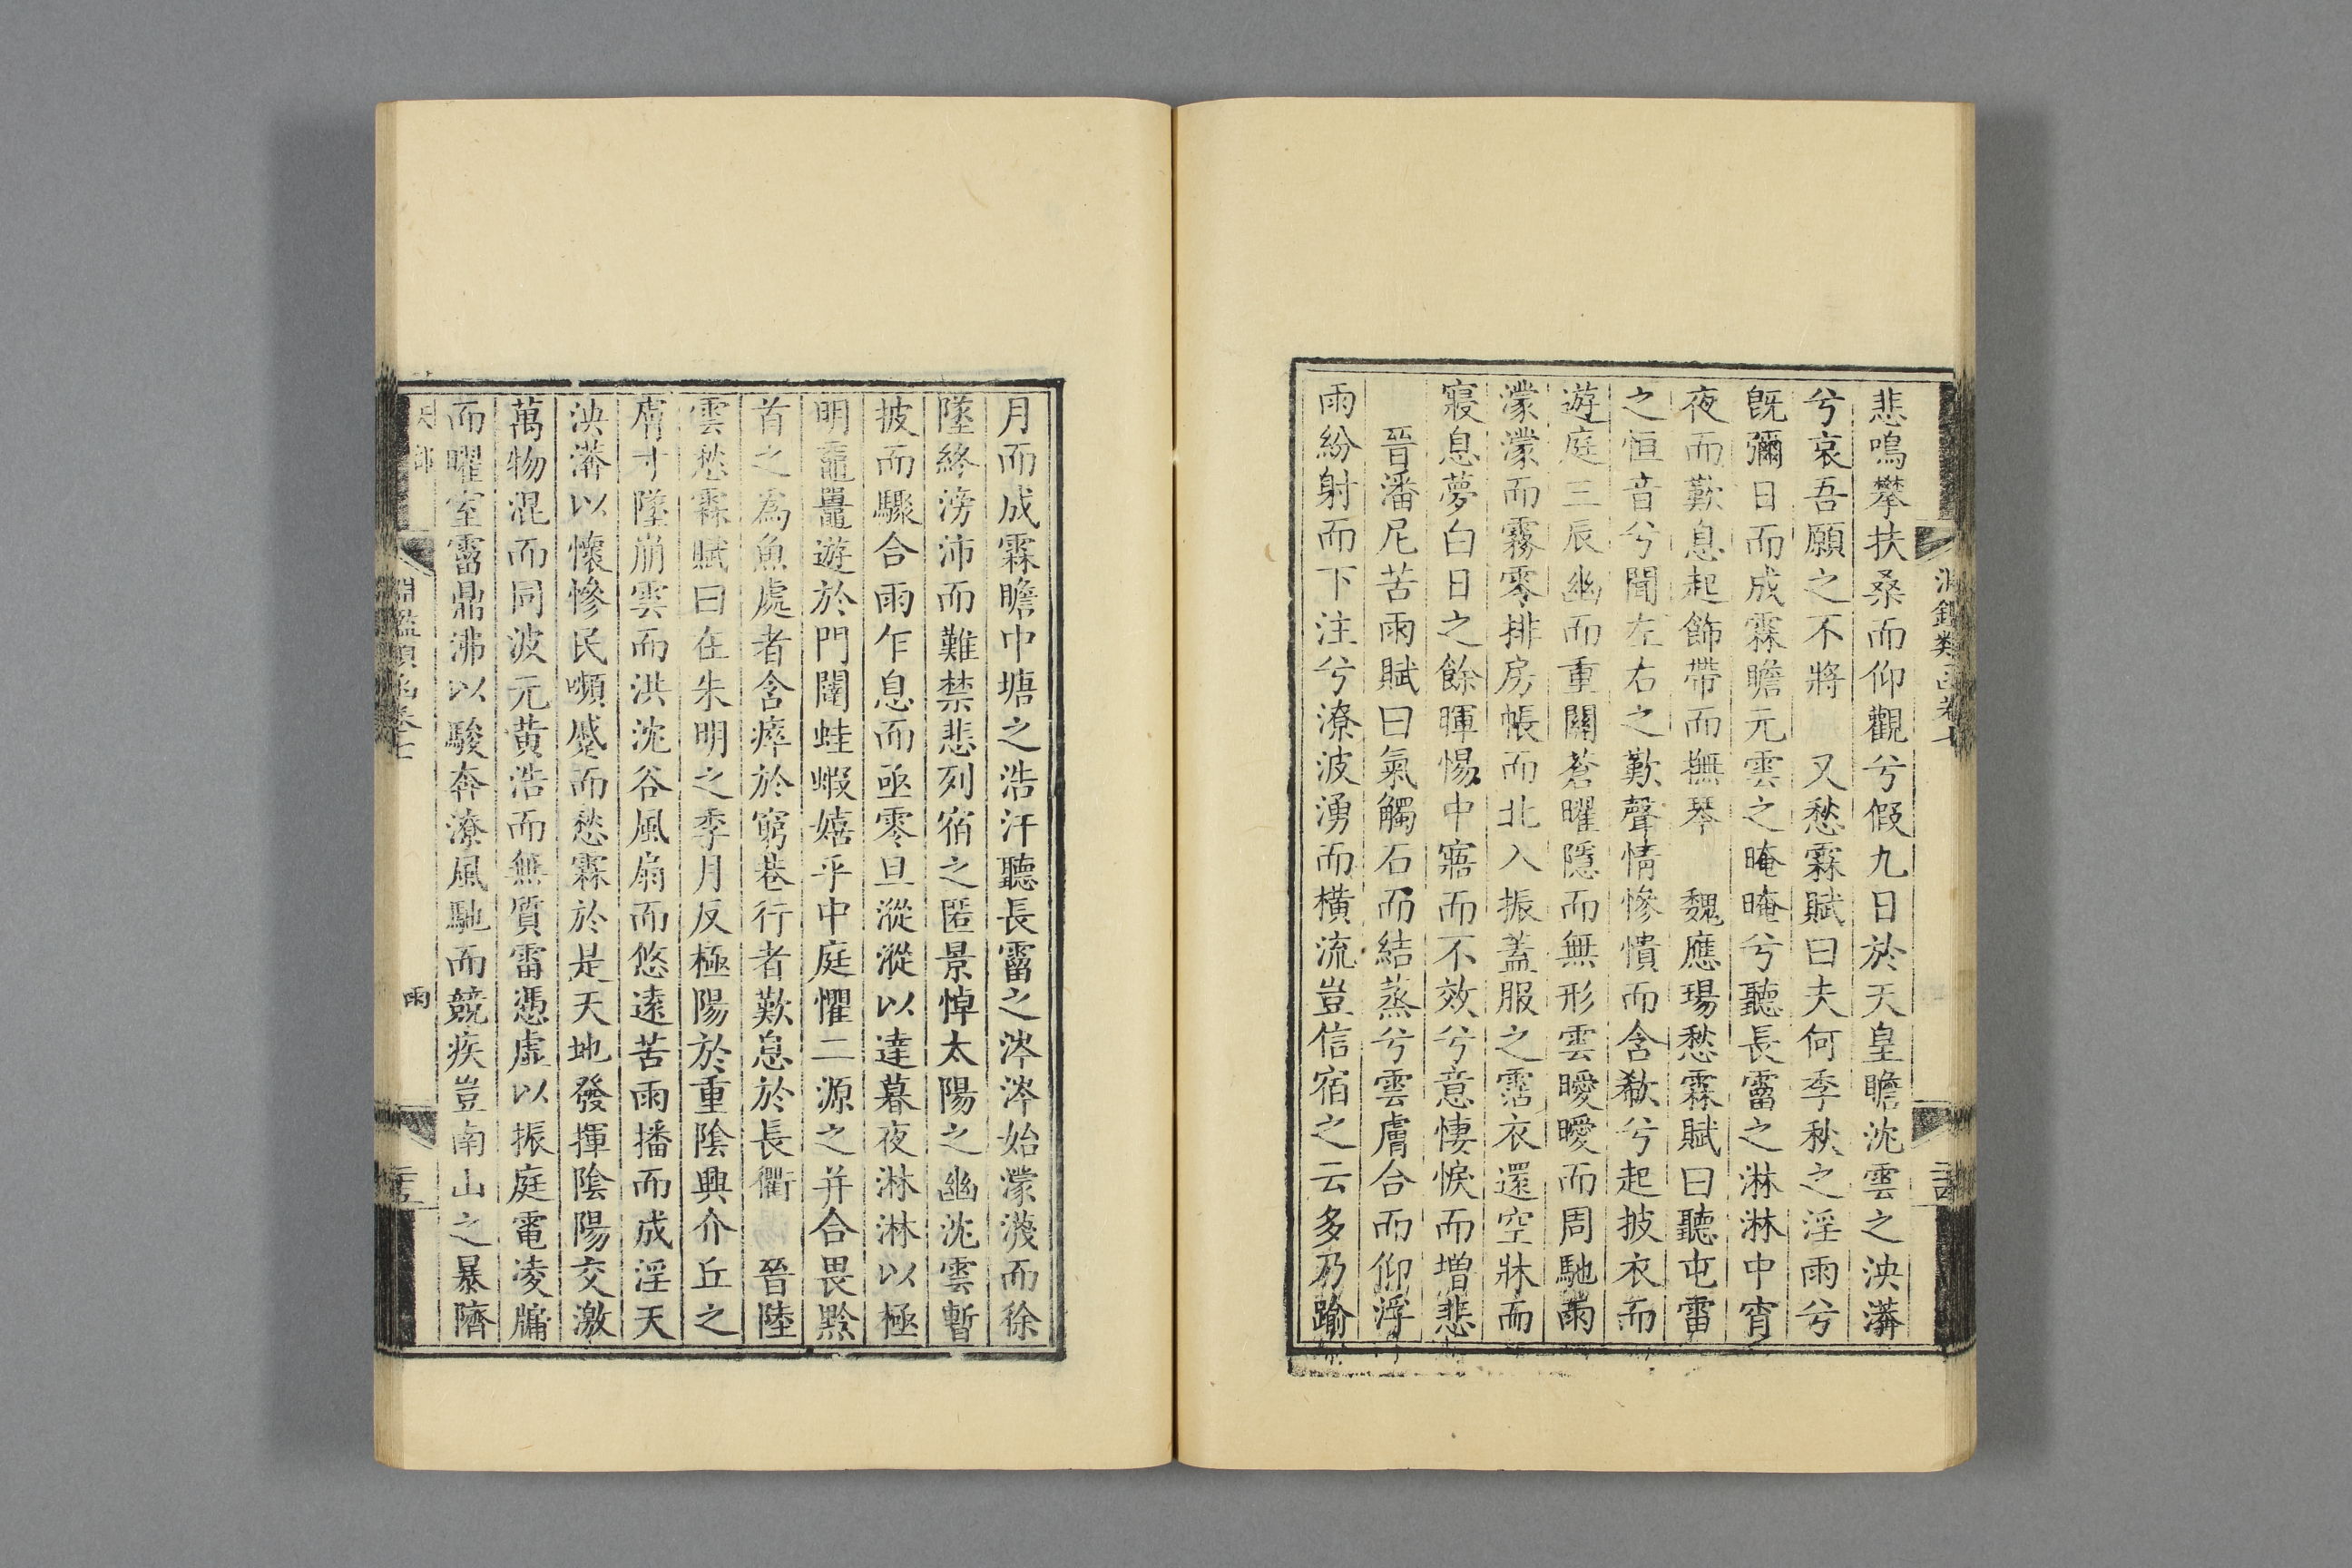 悲鳴攀扶桑而仰觀兮假九日於天皇瞻沈雲之泱漭
兮哀吾願之不將　又愁霖賦曰夫何季秋之淫雨兮
既彌日而成霖瞻元雲之晻晻兮聽長霤之淋淋中宵
夜而歎息起飾帶而撫琴　魏應瑒愁霖賦曰聽屯雷
之恒音兮聞左右之歎聲情慘憒而含欷兮起披衣而
遊庭三辰幽而重關蒼曜隱而無形雲曖曖而周馳雨
濛濛而霧零排房帳而北入振蓋服之霑衣還空牀而
寢息夢白日之餘暉惕中寤而不效兮意悽悷而增悲
晉潘尼苦雨賦曰氣觸石而結蒸兮雲膚合而仰浮
雨紛射而下注兮潦波湧而橫流豈信宿之云多乃踰
月而成霖瞻中塘之浩汗聽長霤之涔涔始濛瀎而徐
墜終滂沛而難禁悲列宿之匿景悼太陽之幽沈雲暫
披而驟合雨乍息而亟零旦漎漎以達暮夜淋淋以極
明黿鼉遊於門闥蛙蝦嬉乎中庭懼二源之并合畏黔
首之為魚處者含瘁於窮巷行者歎息於長衢　晉陸
雲愁霖賦曰在朱明之季月反極陽於重陰興介丘之
膚寸墜崩雲而洪沈谷風扇而悠遠苦雨播而成淫天
泱漭以懷慘民嚬蹙而愁霖於是天地發揮陰陽交激
萬物混而同波元黃浩而無質雷憑虛以振庭電凌牖
而曜室霤鼎沸以駿奔潦風馳而競疾豈南山之暴隮
天部
淵鑑類函卷七
雨